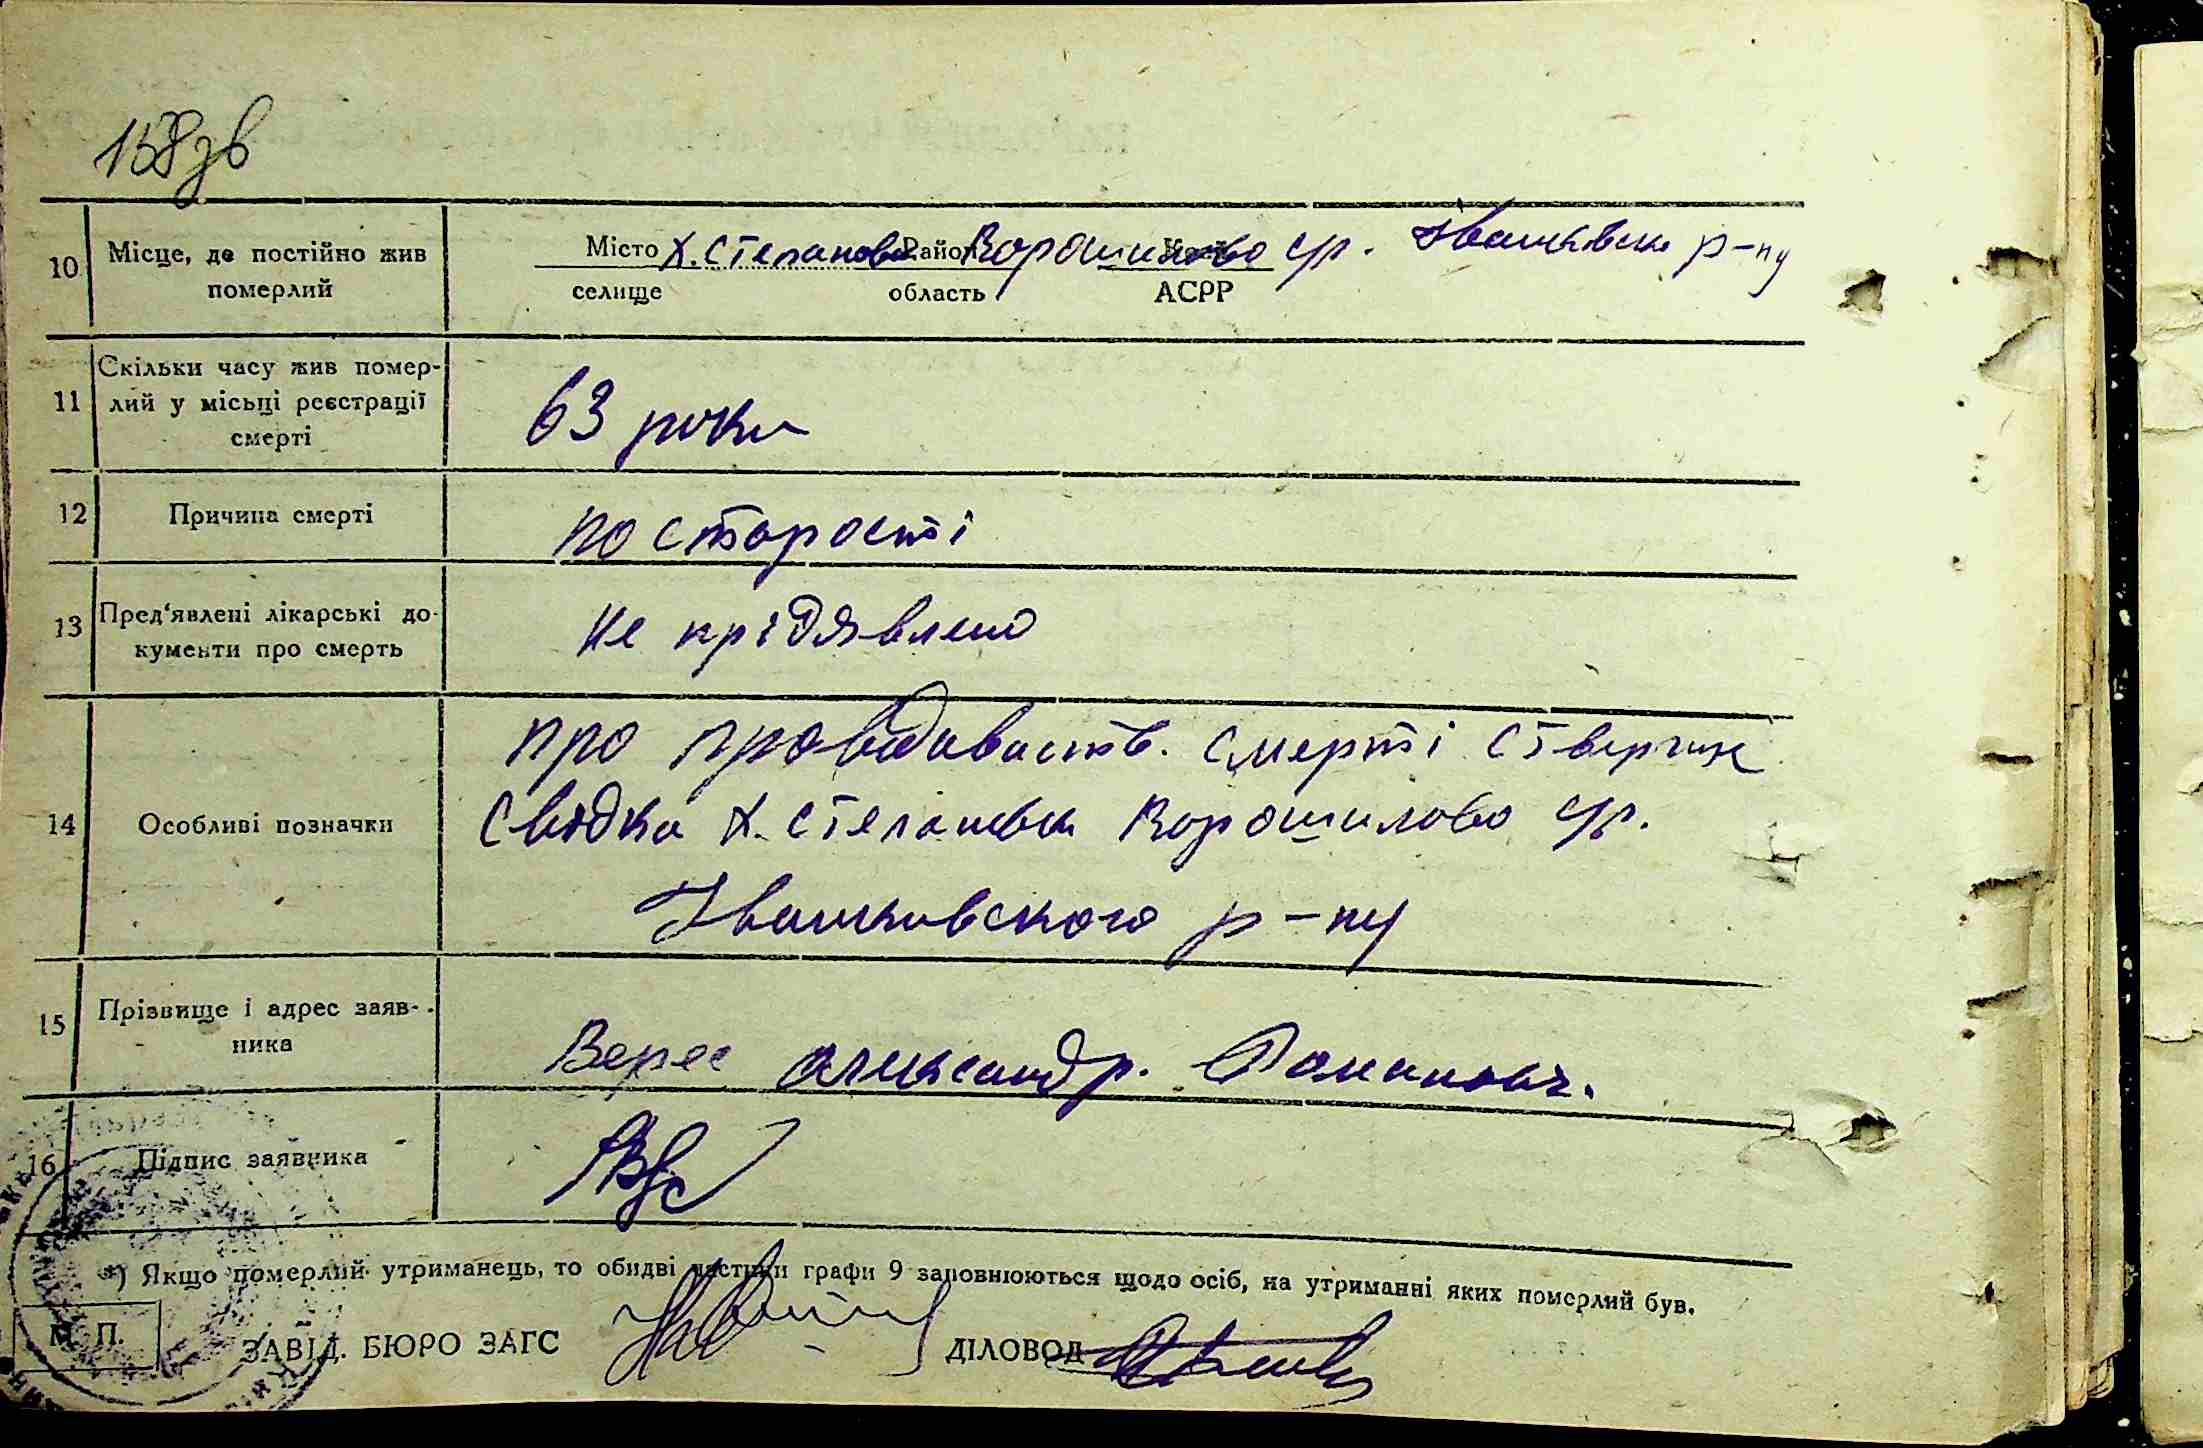 158зв
10 Місце, де постійно жив померлий
Місто Х. Степановка Район Ворошилово с/р. Івашковськ р-ну
селище область АСРР
11 Скільки часу жив помер-
лий у місьці реєстрації
смерті
63 роки
12 Причина смерті
по старості
13 Пред'явлені лікарські до-
кументи про смерть
не прідявлено
14 Особливі позначки
про правдивость. смерті стверж
свідки х. Степановки Ворошилово с/р.
Івашковского р-ну
15 Прізвище і адрес заяв-
ника
Верес Олександр. Романович.
16 Підпис заявника
*) Якщо померлий утриманець, то обидві частини графи 9 заповнюються щодо осіб, на утриманні яких померлий був.
М. П.
ЗАВІД. БЮРО ЗАГС
ДІЛОВОД